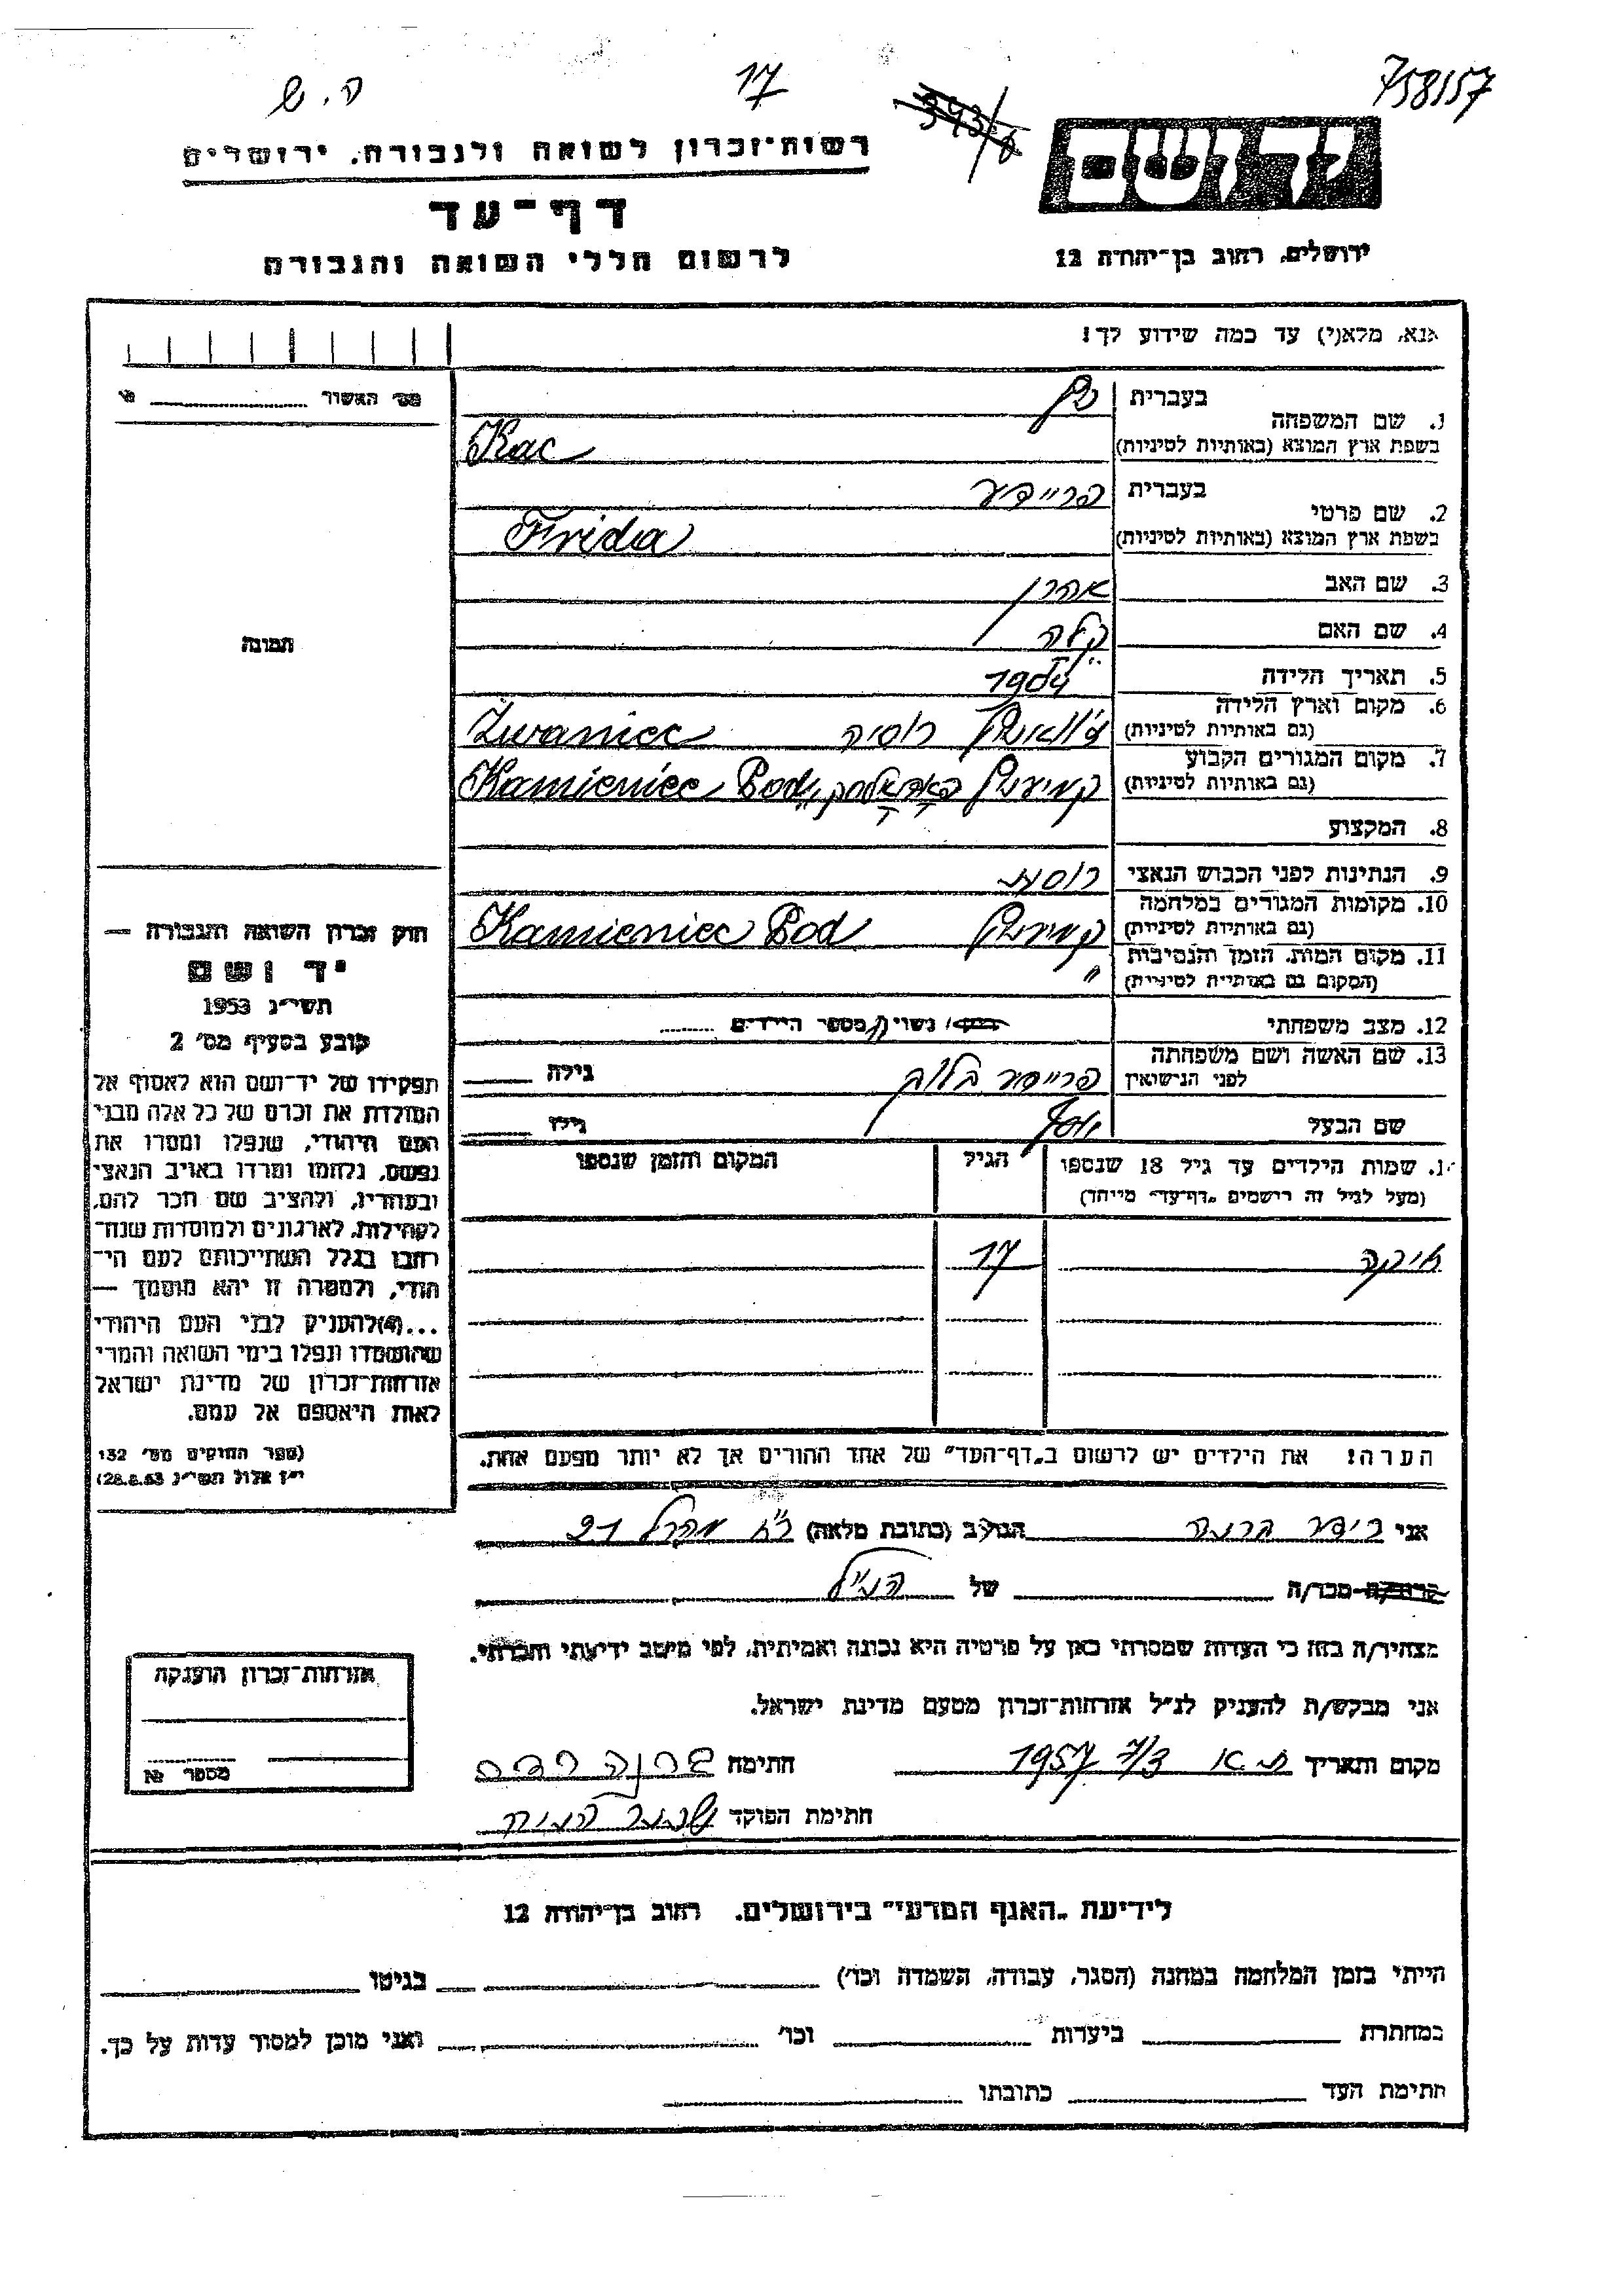 ה. ש 17 758157
רשות-זכרון לשואה ולגבורה, ירושלים
דף-עד
לרשום חללי השואה והגבורה
ירושלים, רחוב בן-יהודה 12
אנא, מלא(י) עד כמה שידוע לך!
מס׳ האשור
תמונה
1. שם המשפחה בעברית כץ
בשפת ארץ המוצא (באותיות לטיניות) Kac
2. שם פרטי בעברית פריידע
בשפת ארץ המוצא (באותיות לטיניות) Frida
3. שם האב אהרן
4. שם האם
5. תאריך הלידה
6. מקום וארץ הלידה (גם באותיות לטיניות) רוסיה Zwaniec
7. מקום המגורים הקבוע (גם באותיות לטיניות) Kamieniec Pod
8. המקצוע
9. הנתינות לפני הכבוש הנאצי
10. מקומות המגורים במלחמה (גם באותיות לטיניות) Kamieniec Pod
11. מקום המות, הזמן והנסיבות (המקום גם באותיות לטיניות) "
12. מצב משפחתי נשוי/ה מספר הילדים
13. שם האשה ושם משפחתה לפני הנישואין גילה
שם הבעל יוסף גילו
שמות הילדים עד גיל 18 שנספו הגיל המקום והזמן שנספו
(מעל לגיל זה רושמים „דף-עד" מיוחד)
17
הערה! את הילדים יש לרשום ב„דף-העד" של אחד ההורים אך לא יותר מפעם אחת.
חוק זכרון השואה והגבורה —
יד ושם
תשי״ג 1953
קובע בסעיף מס׳ 2
תפקידו של יד-ושם הוא לאסוף אל
המולדת את זכרם של כל אלה מבני
העם היהודי, שנפלו ומסרו את
נפשם, נלחמו ומרדו באויב הנאצי
ובעוזריו, ולהציב שם וזכר להם,
לקהילות, לארגונים ולמוסדות שנח-
רבו בגלל השתייכותם לעם הי-
הודי, ולמטרה זו יהא מוסמך —
...(4) להעניק לבני העם היהודי
שהושמדו ונפלו בימי השואה והמרי
אזרחות-זכרון של מדינת ישראל
לאות היאספם אל עמם.
(ספר החוקים מס׳ 132
י״ז אלול תשי״ג 28.8.53)
אני הגר/ב (כתובת מלאה) 21
מכר/ה של הנ״ל
מצהיר/ה בזה כי העדות שמסרתי כאן על פרטיה היא נכונה ואמיתית, לפי מיטב ידיעתי והכרתי.
אני מבקש/ת להעניק לנ״ל אזרחות-זכרון מטעם מדינת ישראל.
מקום ותאריך ת.א 7/3 1957 חתימה
חתימת הפוקד
אזרחות-זכרון הוענקה
מספר №
לידיעת „האגף המדעי" בירושלים, רחוב בן-יהודה 12
הייתי בזמן המלחמה במחנה (הסגר, עבודה, השמדה וכו׳) בגיטו
במחתרת ביערות וכו׳ ואני מוכן למסור עדות על כך.
חתימת העד כתובתו